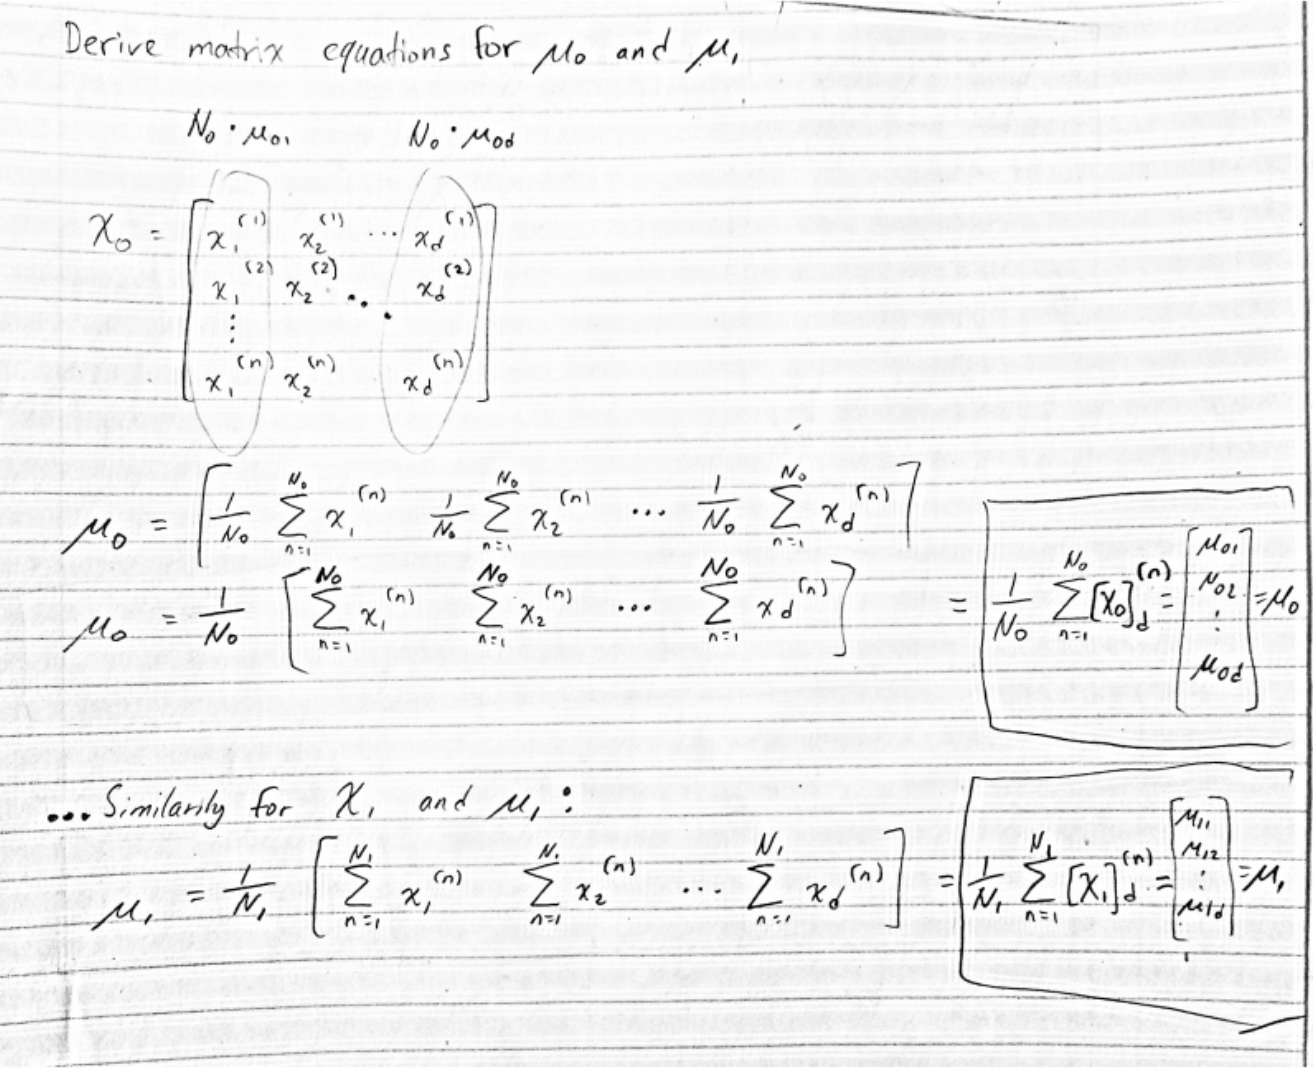 Derive matrix equations for μ₀ and μ₁
N₀ · μ₀₁ N₀ · μ₀d
X₀ = [ x₁⁽¹⁾ x₂⁽¹⁾ ... x_d⁽¹⁾
x₁⁽²⁾ x₂⁽²⁾ ⋱ x_d⁽²⁾
⋮
x₁⁽ⁿ⁾ x₂⁽ⁿ⁾ x_d⁽ⁿ⁾ ]
μ₀ = [ 1/N₀ ∑_{n=1}^{N₀} x₁⁽ⁿ⁾ 1/N₀ ∑_{n=1}^{N₀} x₂⁽ⁿ⁾ ... 1/N₀ ∑_{n=1}^{N₀} x_d⁽ⁿ⁾ ]
μ₀ = 1/N₀ [ ∑_{n=1}^{N₀} x₁⁽ⁿ⁾ ∑_{n=1}^{N₀} x₂⁽ⁿ⁾ ... ∑_{n=1}^{N₀} x_d⁽ⁿ⁾ ] = 1/N₀ ∑_{n=1}^{N₀} [X₀]_d⁽ⁿ⁾ = [ μ₀₁ μ₀₂ ⋮ μ₀d ] = μ₀
... Similarily for X₁ and μ₁:
μ₁ = 1/N₁ [ ∑_{n=1}^{N₁} x₁⁽ⁿ⁾ ∑_{n=1}^{N} x₂⁽ⁿ⁾ ... ∑_{n=1}^{N₁} x_d⁽ⁿ⁾ ] = 1/N₁ ∑_{n=1}^{N₁} [X₁]_d⁽ⁿ⁾ = [ μ₁₁ μ₁₂ ⋮ μ₁d ] = μ₁